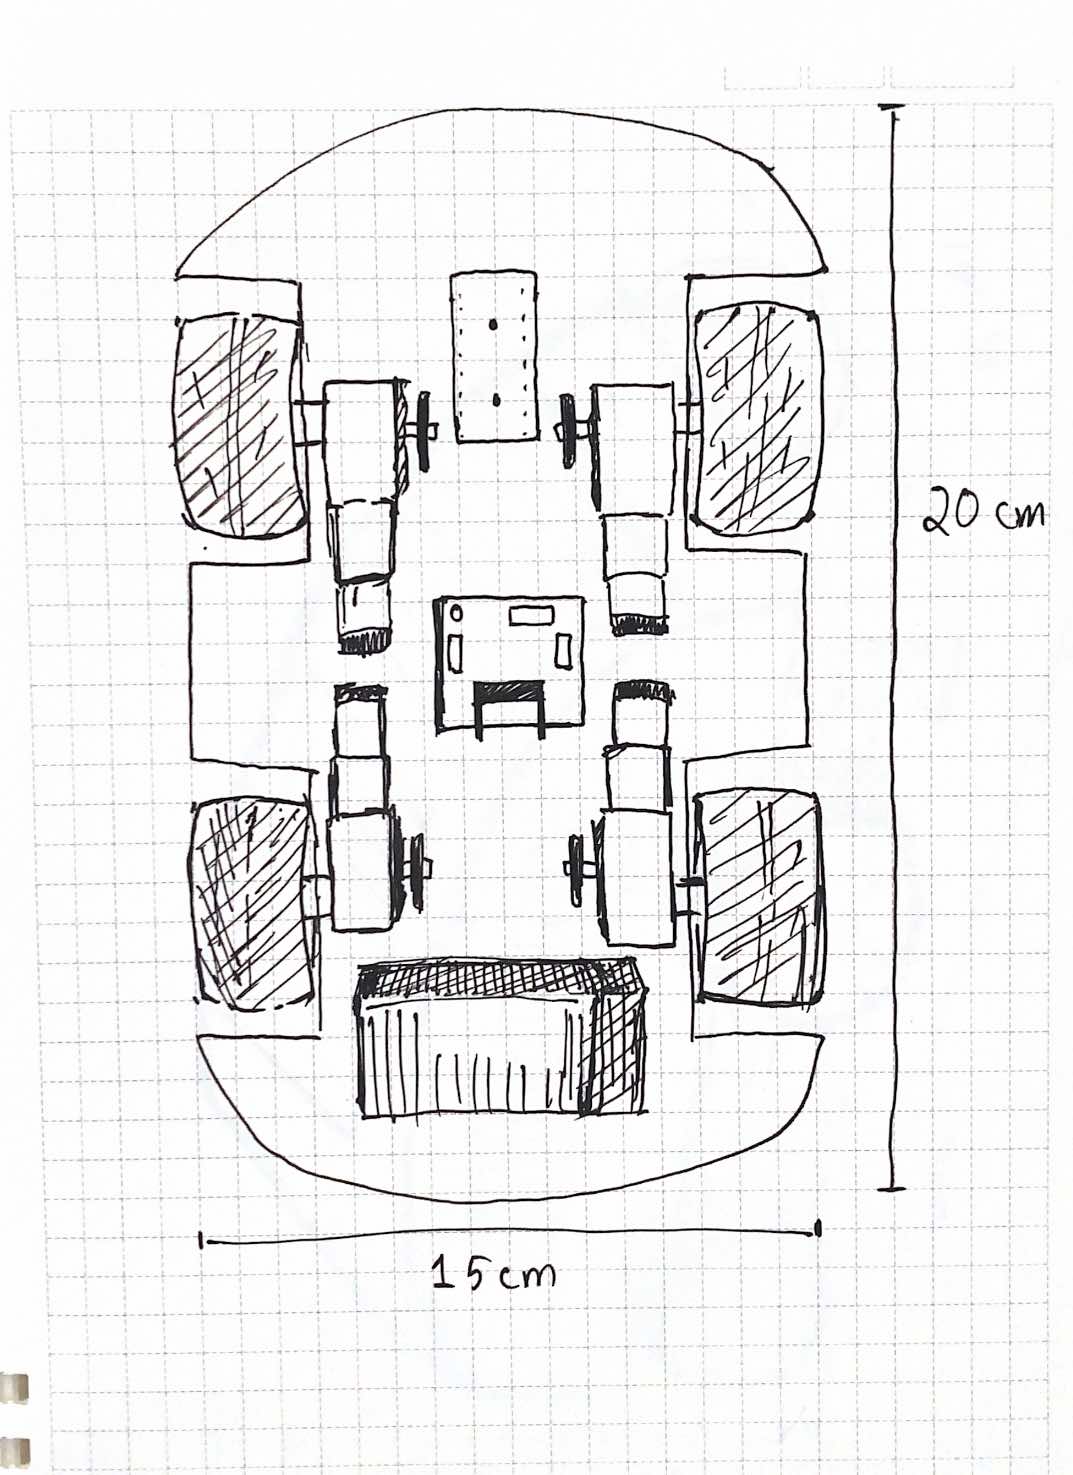 20 cm
15 cm